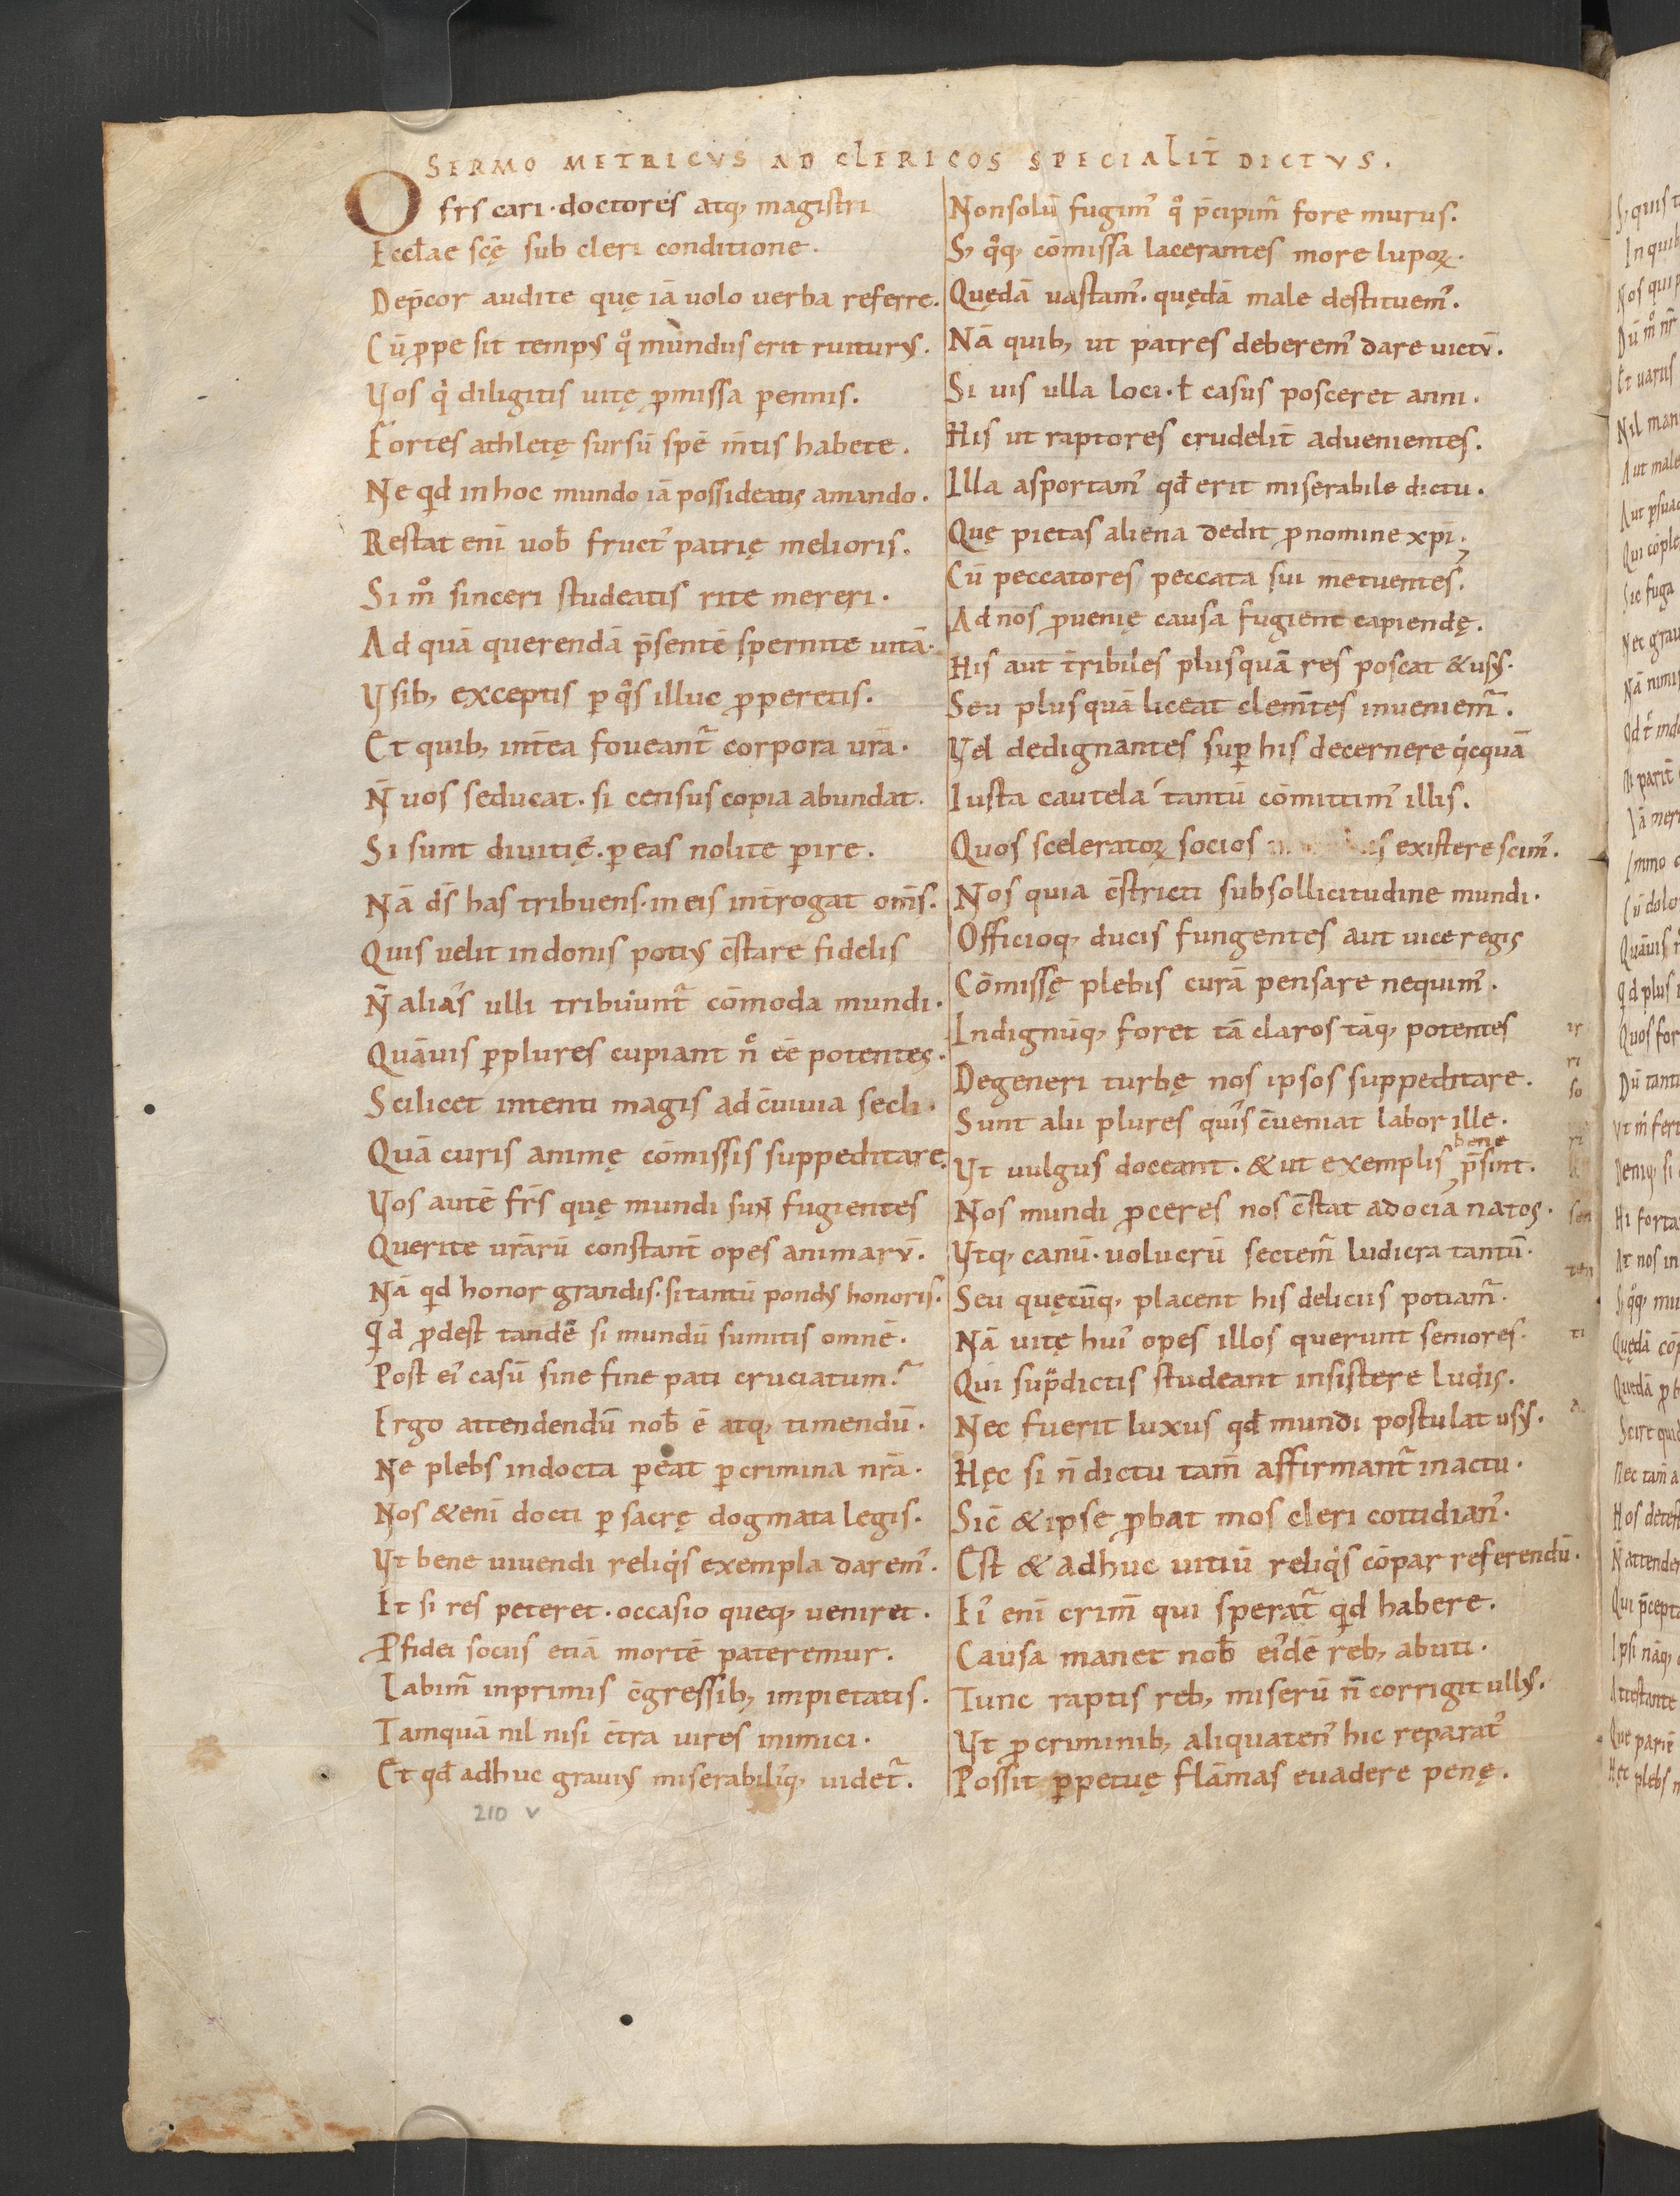 SERMO METRICVS AD CLERICOS SPECIALIT̄ DICTVS.
O frs cari · doctores atq, magistri
Eccl̄ae scę̄ sub cleri conditione.
Dep̄cor audite quę iā uolo uerba referre.
Cū ꝓpe sit tempꝰ qͦ mundus erit ruiturꝰ.
Vos qͥ diligitis uitę ꝓmissa ꝑennis.
Fortes athletę sursū spē m̄tis habete.
Ne qd in hoc mundo iā possideatis amando.
Restat enī uob̄ fructꝰ patrię melioris.
Si mͦ sinceri studeatis rite mereri.
Ad quā querendā p̄sentē spernite uitā.
Vsib, exceptis ꝑ qͦs illuc ꝓperetis.
Et quib, int̄ea foueant᷑ corpora ur̄a.
N̄ uos seducat. si census copia abundat.
Si sunt diuitię. ꝑ eas nolite ꝑire.
Nā ds̄ has tribuens. in eis int̄rogat om̄s.
Quis uelit in donis potiꝰ c̄stare fidelis
N̄ alias ulli tribuunt᷑ cōmoda mundi.
Quāuis ꝑplures cupiant nͦ eē potentes.
Scilicet intenti magis ad c̄uiuia secli.
Quā curis animę cōmissis suppeditare.
Vos autē frs̄ quę mundi sunt fugientes
Querite ur̄arū constant̄ opes animarū.
Nā qd honor grandis. si tantū pondꝰ honoris.
Qd ꝓdest tandē si mundū sumitis omnē.
Post eiꝰ casū sine fine pati cruciatum?
Ergo attendendū nob̄ ē atq, timendū.
Ne plebs indocta ꝑeat ꝑ crimina nr̄a.
Nos & enī docti ꝑ sacrę dogmata legis.
Vt bene uiuendi reliqͥs exempla daremꝰ.
Et si res peteret. occasio queq, ueniret.
P fidei sociis etiā mortē pateremur.
Labim̄ inprimis c̄gressib, impietatis.
Tamquā nil nisi c̄tra uires inimici.
Et qd̄ adhuc grauiꝰ miserabiliꝰq, uidet᷑.
Non solū fugimꝰ qͦ p̄cipim᷑ fore murus.
S, qͦq, cōmissa lacerantes more lupoꝝ.
Quędā uastamꝰ. quędā male destituemꝰ.
Nā quib, ut patres deberemꝰ dare uictū.
Si uis ulla loci · ł casus posceret anni.
His ut raptores crudelit̄ aduenientes.
Illa asportamꝰ qd̄ erit miserabile dictu.
Quę pietas aliena dedit ꝓ nomine xp̄i.
Cū peccatores peccata sui metuentes.
Ad nos ꝓ uenię causa fugient capiendę.
His aut t̄ribiles plus quā res poscat & usꝰ.
Seu plus quā liceat clem̄tes inueniem᷑.
Vel dedignantes suꝑ his decernere qͥcquā
Iusta cautela tantū cōmittimꝰ illis.
Quos sceleratoꝝ socios existere scimꝰ.
Nos quia c̄stricti sub sollicitudine mundi.
Officioq, ducis fungentes aut uice regis
Cōmissę plebis curā pensare nequimꝰ.
Indignūq, foret tā claros tāq, potentes
Degeneri turbę nos ipsos suppeditare.
Sunt alii plures quīs c̄ueniat labor ille.
Vt uulgus doceant. & ut exemplis bene p̄sint.
Nos mundi ꝓceres nos c̄stat ad ocia natos.
Vtq, canū. uolucrū sectem᷑ ludicra tantū.
Seu quęcūq, placent his deliciis potiam᷑.
Nā uitę huiꝰ opes illos querunt seniores.
Qui supͣdictis studeant insistere ludis.
Nec fuerit luxus qd̄ mundi postulat usꝰ.
Hęc si n̄ dictu tam̄ affirmant᷑ in actu.
Sic̄ & ipse ꝓbat mos cleri cottidianꝰ.
Est & adhuc uitiū reliqͥs cōpar referendū.
Eiꝰ enī crim̄ qui sperat᷑ qd habere.
Causa manet nob̄ eiꝰdē reb, abuti.
Tunc raptis reb, miserū n̄ corrigit ullꝰ.
Vt ꝓ criminib, aliquatenꝰ hic reparatꝰ
Possit ꝑpetuę flāmas euadere penę.
210 v